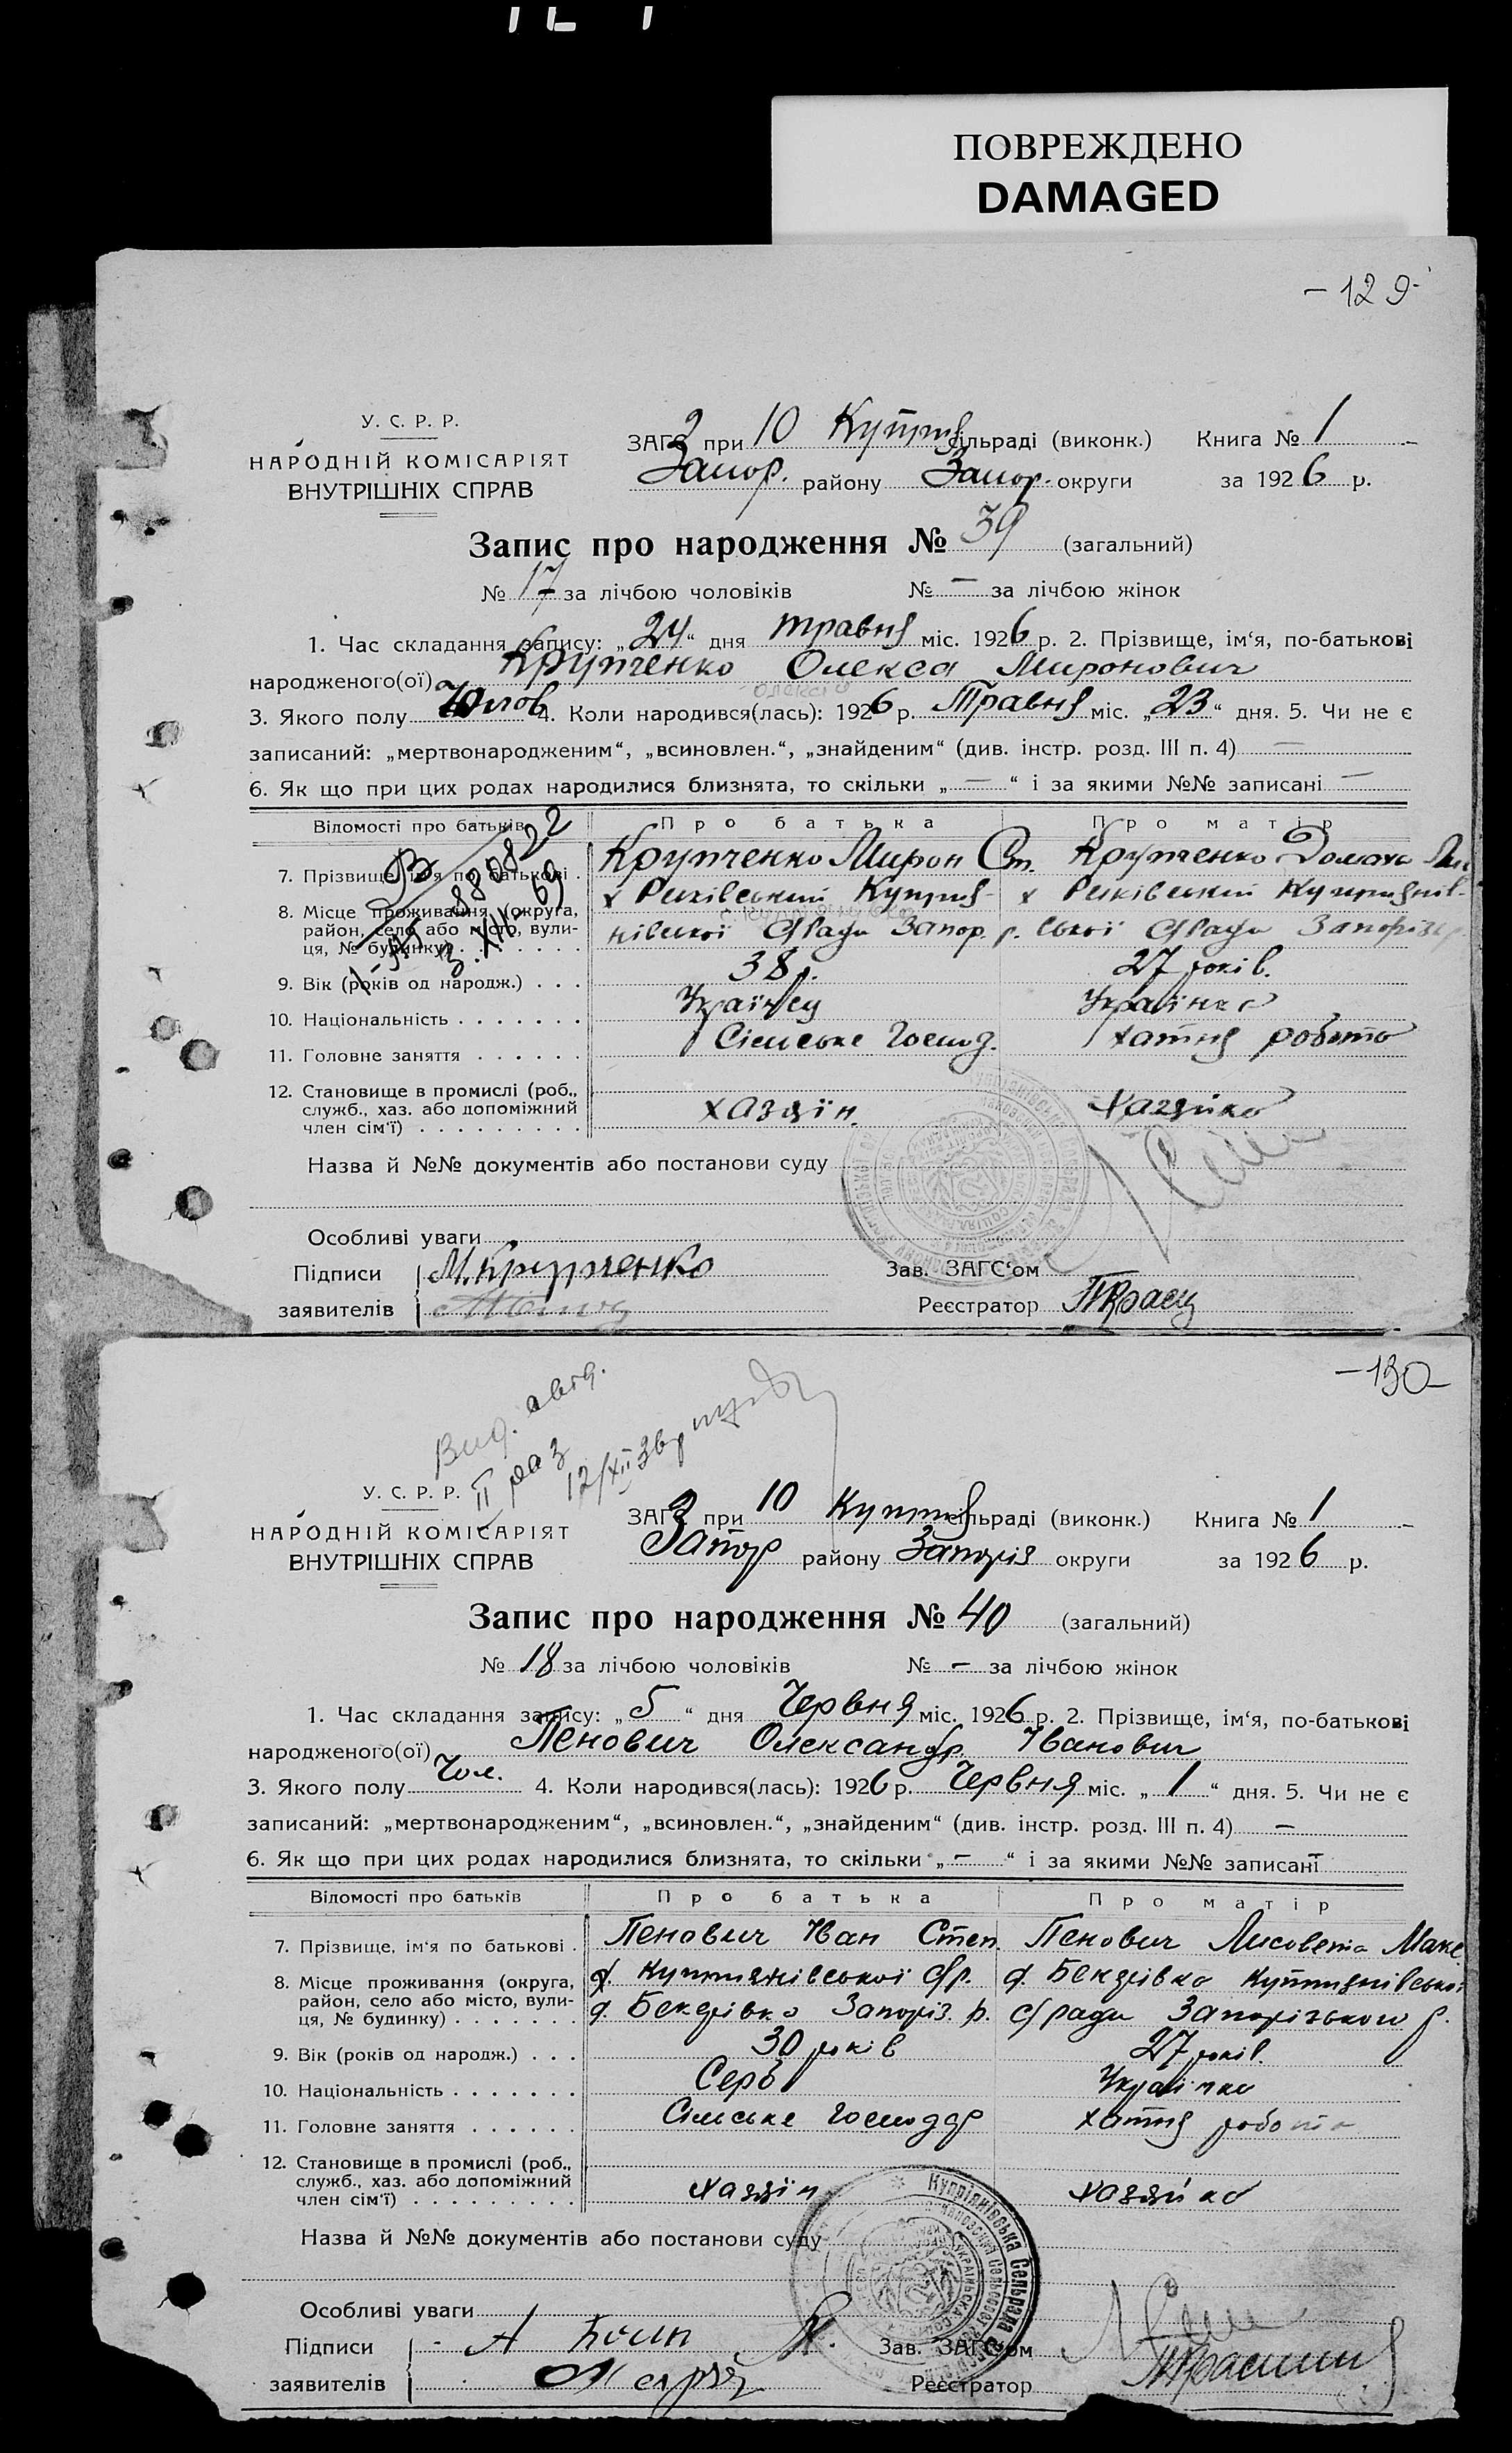 ПОВРЕЖДЕНО
DAMAGED
-129-
У. С. Р. Р.
НАРОДНІЙ КОМІСАРІЯТ
ВНУТРІШНІХ СПРАВ
ЗАГС при 10 сільраді (виконк.) Книга № 1
Запор. району Запор. округи за 1926 р.
Запис про народження № 39 (загальний)
№ 17 за лічбою чоловіків № — за лічбою жінок
1. Час складання запису: „24“ дня травня міс. 1926 р. 2. Прізвище, ім‘я, по-батькові
народженого(ої) Крупченко Олекса Миронович
Олексій
3. Якого полу Чолов 4. Коли народився(лась): 1926 р. Травня міс. „23“ дня. 5. Чи не є
записаний: „мертвонародженим“, „всиновлен.“, „знайденим“ (див. інстр. розд. III п. 4) —
6. Як що при цих родах народилися близнята, то скільки „—“ і за якими №№ записані —
Відомості про батьків Про батька Про матір
7. Прізвище, ім‘я по батькові . Крупченко Мирон Ст. Крупченко Домаха
8. Місце проживання (округа,
район, село або місто, вули-
ця, № будинку) . . . . . . Запор. р.
9. Вік (років од народж.) . . . 38 р. 27 років.
10. Національність . . . . . . . Українец Українка
11. Головне заняття . . . . . . Сільське Господ. хатня робота
12. Становище в промислі (роб.,
служб., хаз. або допоміжний
член сім‘ї) . . . . . . . . . хазяїн. хазяйка
Назва й №№ документів або постанови суду
Особливі уваги
Підписи М. Крупченко Зав. ЗАГС‘ом
заявителів Реєстратор
-130-
Вид.
II раз
У. С. Р. Р.
НАРОДНІЙ КОМІСАРІЯТ
ВНУТРІШНІХ СПРАВ
ЗАГС при 10 сільраді (виконк.) Книга № 1
Запор району Запорія округи за 1926 р.
Запис про народження № 40 (загальний)
№ 18 за лічбою чоловіків № — за лічбою жінок
1. Час складання запису: „5“ дня Червня міс. 1926 р. 2. Прізвище, ім‘я, по-батькові
народженого(ої) Пенович Олександр Іванович
3. Якого полу Чол. 4. Коли народився(лась): 1926 р. Червня міс. „1“ дня. 5. Чи не є
записаний: „мертвонародженим“, „всиновлен.“, „знайденим“ (див. інстр. розд. III п. 4) —
6. Як що при цих родах народилися близнята, то скільки „—“ і за якими №№ записані —
Відомості про батьків Про батька Про матір
7. Прізвище, ім‘я по батькові . Пенович Іван Степ. Пенович Лисовета Макс
8. Місце проживання (округа,
район, село або місто, вули-
ця, № будинку) . . . . . . . Запоріз. р. с/ради Запорізького р.
9. Вік (років од народж.) . . . 30 років 27 років.
10. Національність . . . . . . . Серб Українка
11. Головне заняття . . . . . . Сільське Господар хатня робота
12. Становище в промислі (роб.,
служб., хаз. або допоміжний
член сім‘ї) . . . . . . . . . хазяїн хазяйка
Купріянівська Сельрада
Назва й №№ документів або постанови суду
Особливі уваги
Підписи Зав. ЗАГС‘ом
заявителів Реєстратор